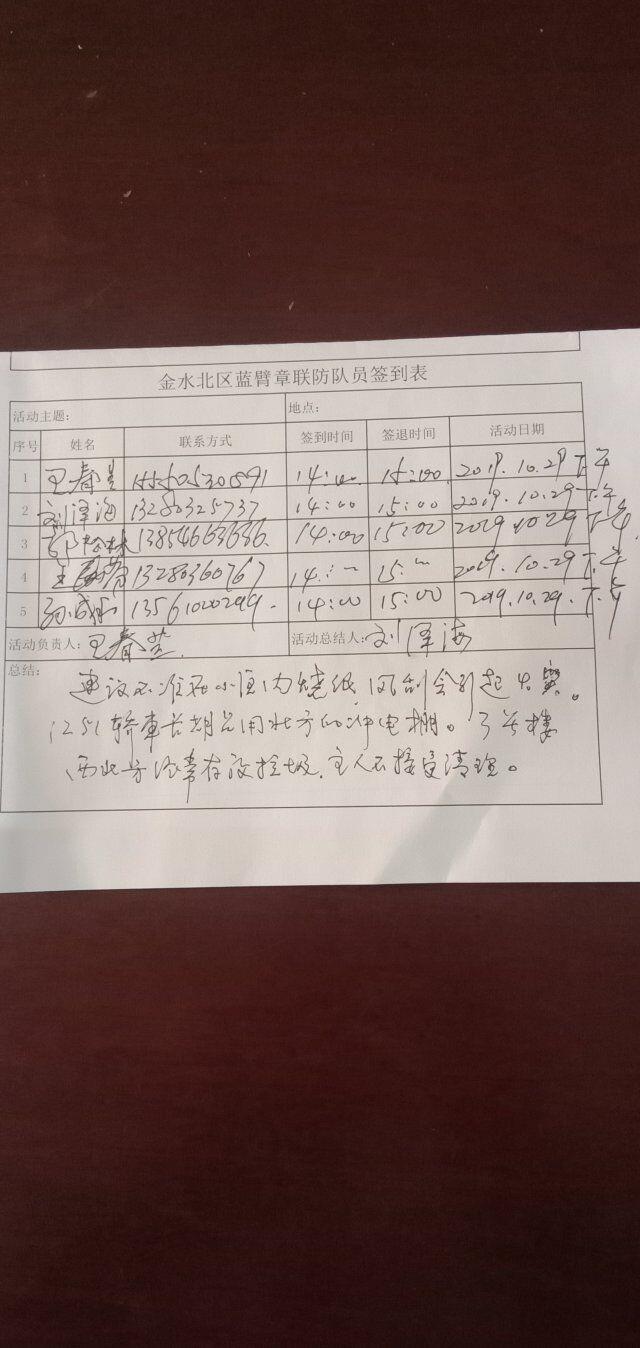 金水北区蓝臂章联防队员签到表
活动主题: 地点:
序号 姓名 联系方式 签到时间 签退时间 活动日期
1 王春兰 15505 14:00 15:00 2019.10.29 下午
2 刘泽海 13280325737 14:00 15:00 2019.10.29 下午
3 13854663686 14:00 15:00 2019.10.29 下午
4 王 13280360767 14: 15: 2019.10.29 下午
5 孙 13561020299 14:00 15:00 2019.10.29 下午
活动负责人: 王春兰 活动总结人: 刘泽海
总结: 建议不准在小区内烧纸 风刮会引起火灾。
1251轿车长期占用北方的冲电棚。3号楼
西北 经常存放垃圾,主人不接受清理。